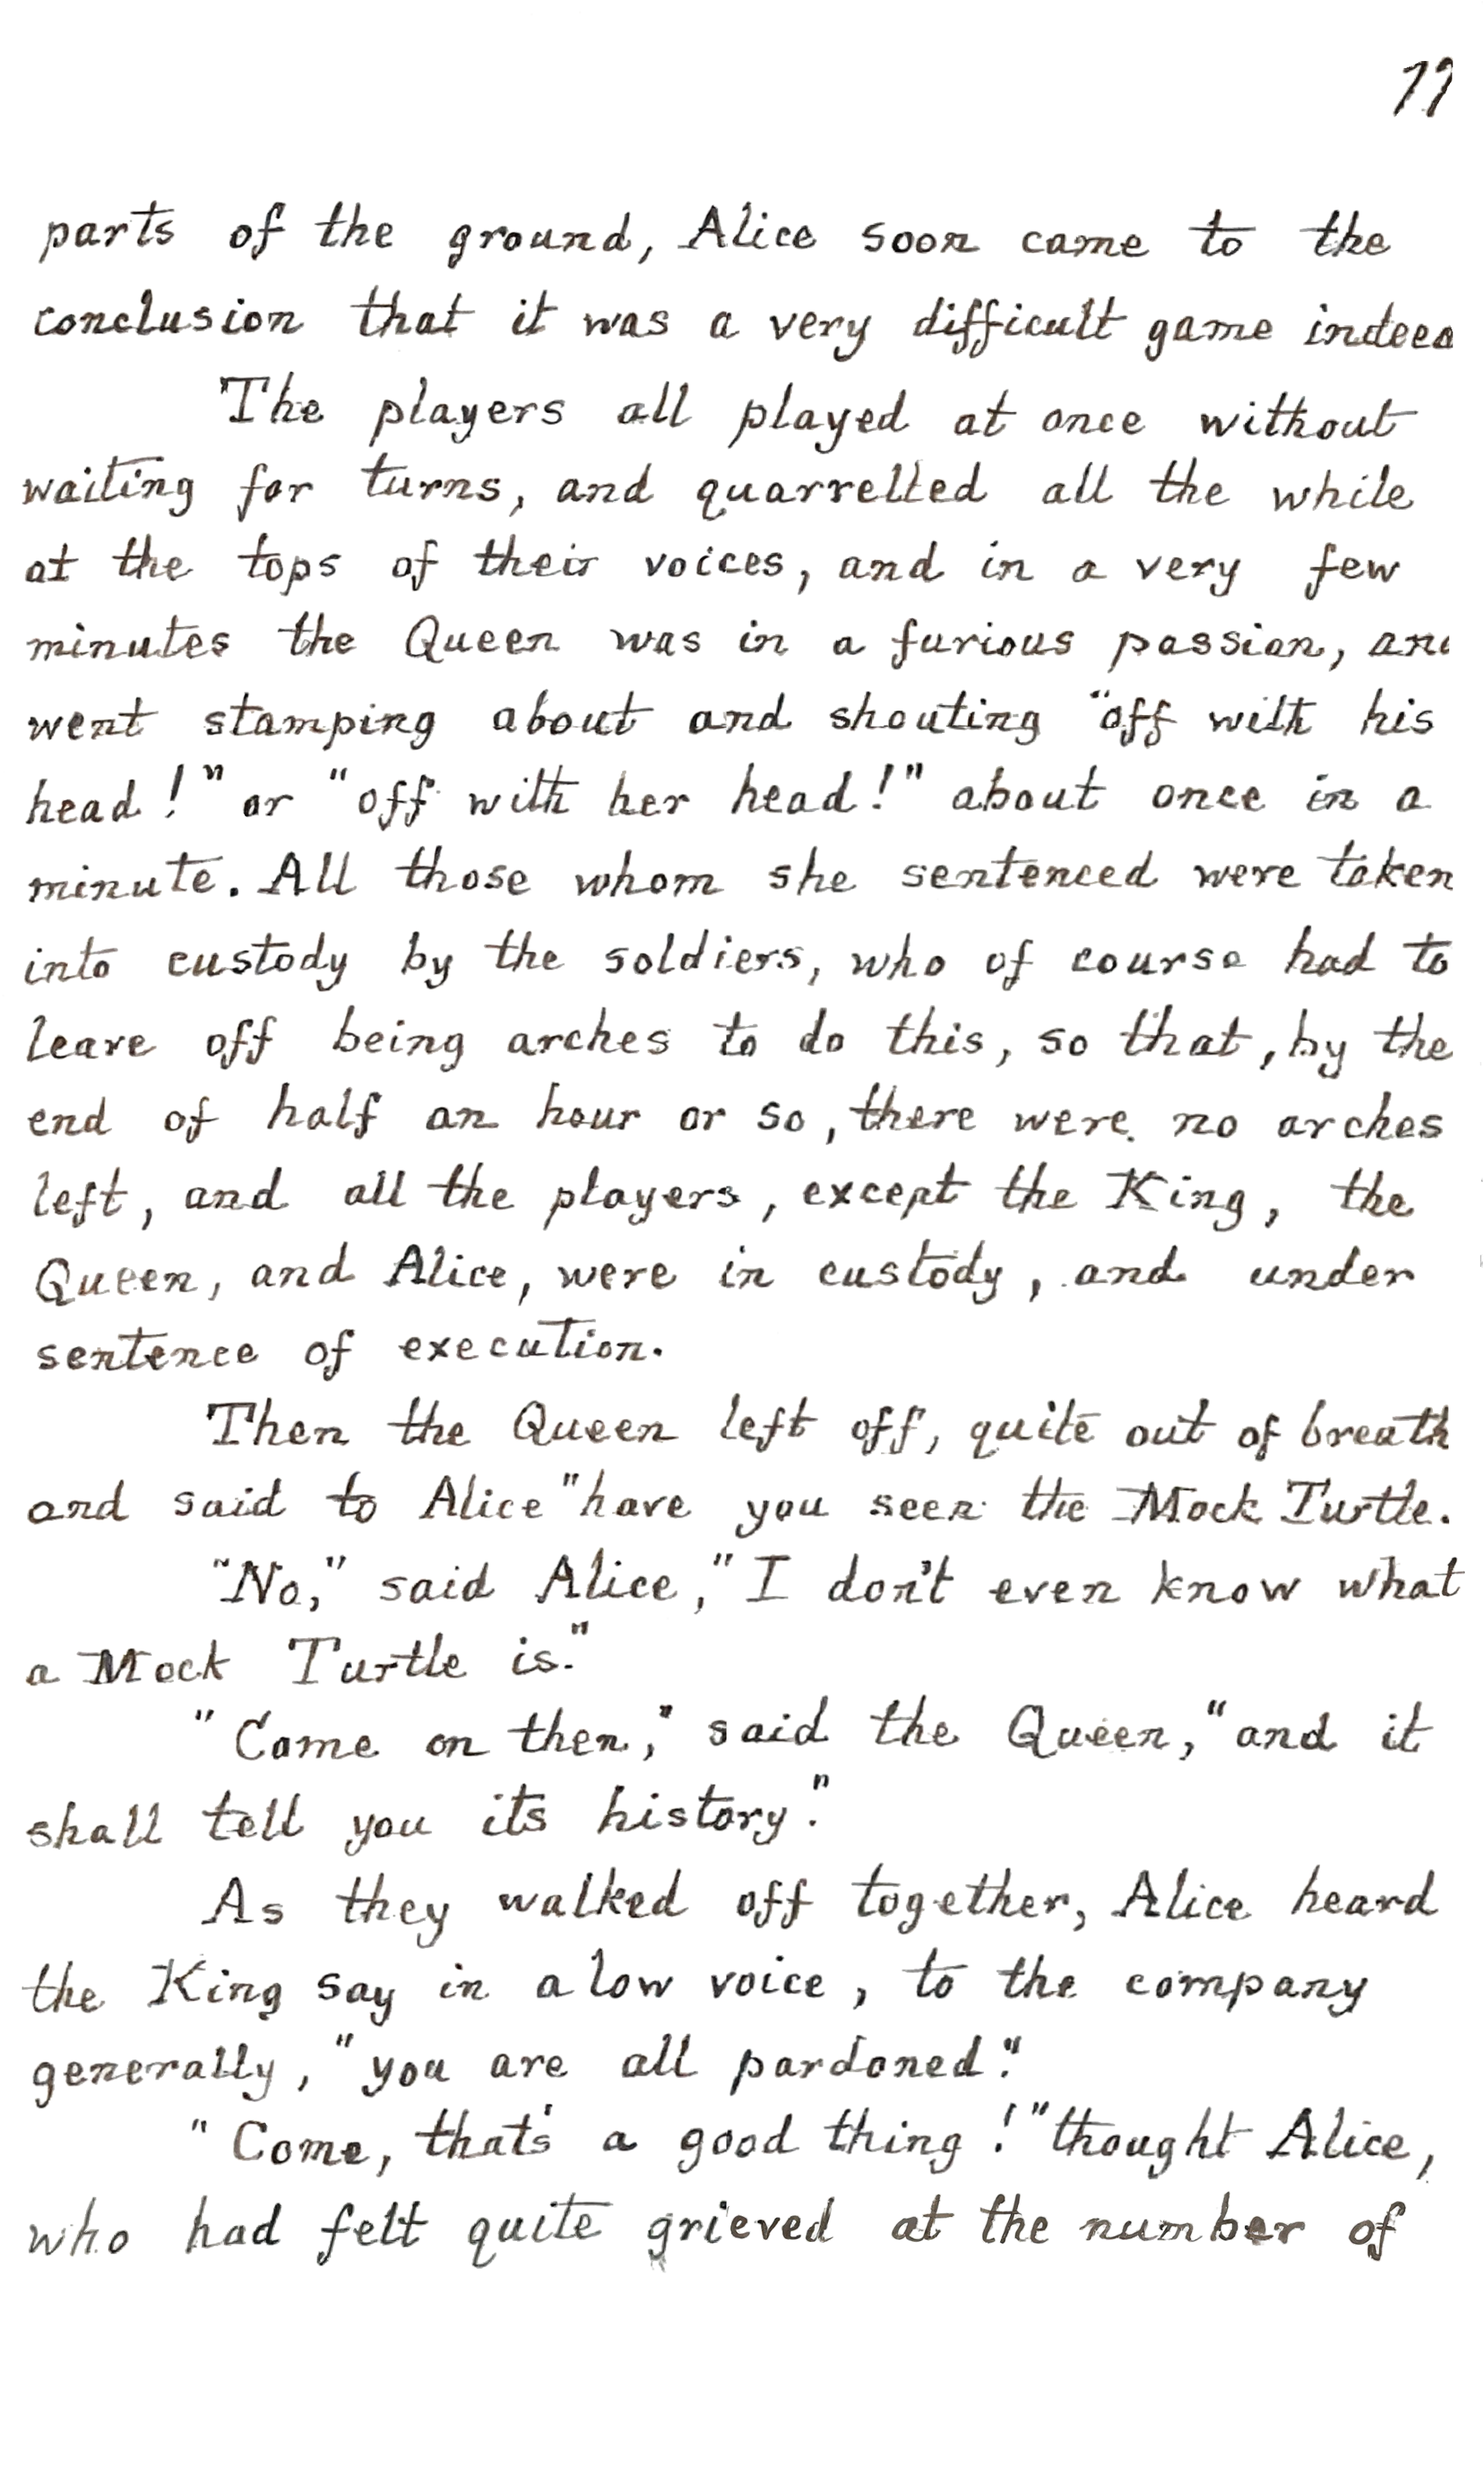 79
parts of the ground, Alice soon came to the
conclusion that it was a very difficult game indeed
The players all played at once without
waiting for turns, and quarrelled all the while
at the tops of their voices, and in a very few
minutes the Queen was in a furious passion, and
went stamping about and shouting "off with his
head!" or "off with her head!" about once in a
minute. All those whom she sentenced were taken
into custody by the soldiers, who of course had to
leave off being arches to do this, so that, by the
end of half an hour or so, there were no arches
left, and all the players, except the King, the
Queen, and Alice, were in custody, and under
sentence of execution.
Then the Queen left off, quite out of breath
and said to Alice "have you seen the Mock Turtle.
"No," said Alice, "I don't even know what
a Mock Turtle is."
"Come on then," said the Queen, "and it
shall tell you its history."
As they walked off together, Alice heard
the King say in a low voice, to the company
generally, "you are all pardoned."
"Come, that's a good thing!" thought Alice,
who had felt quite grieved at the number of